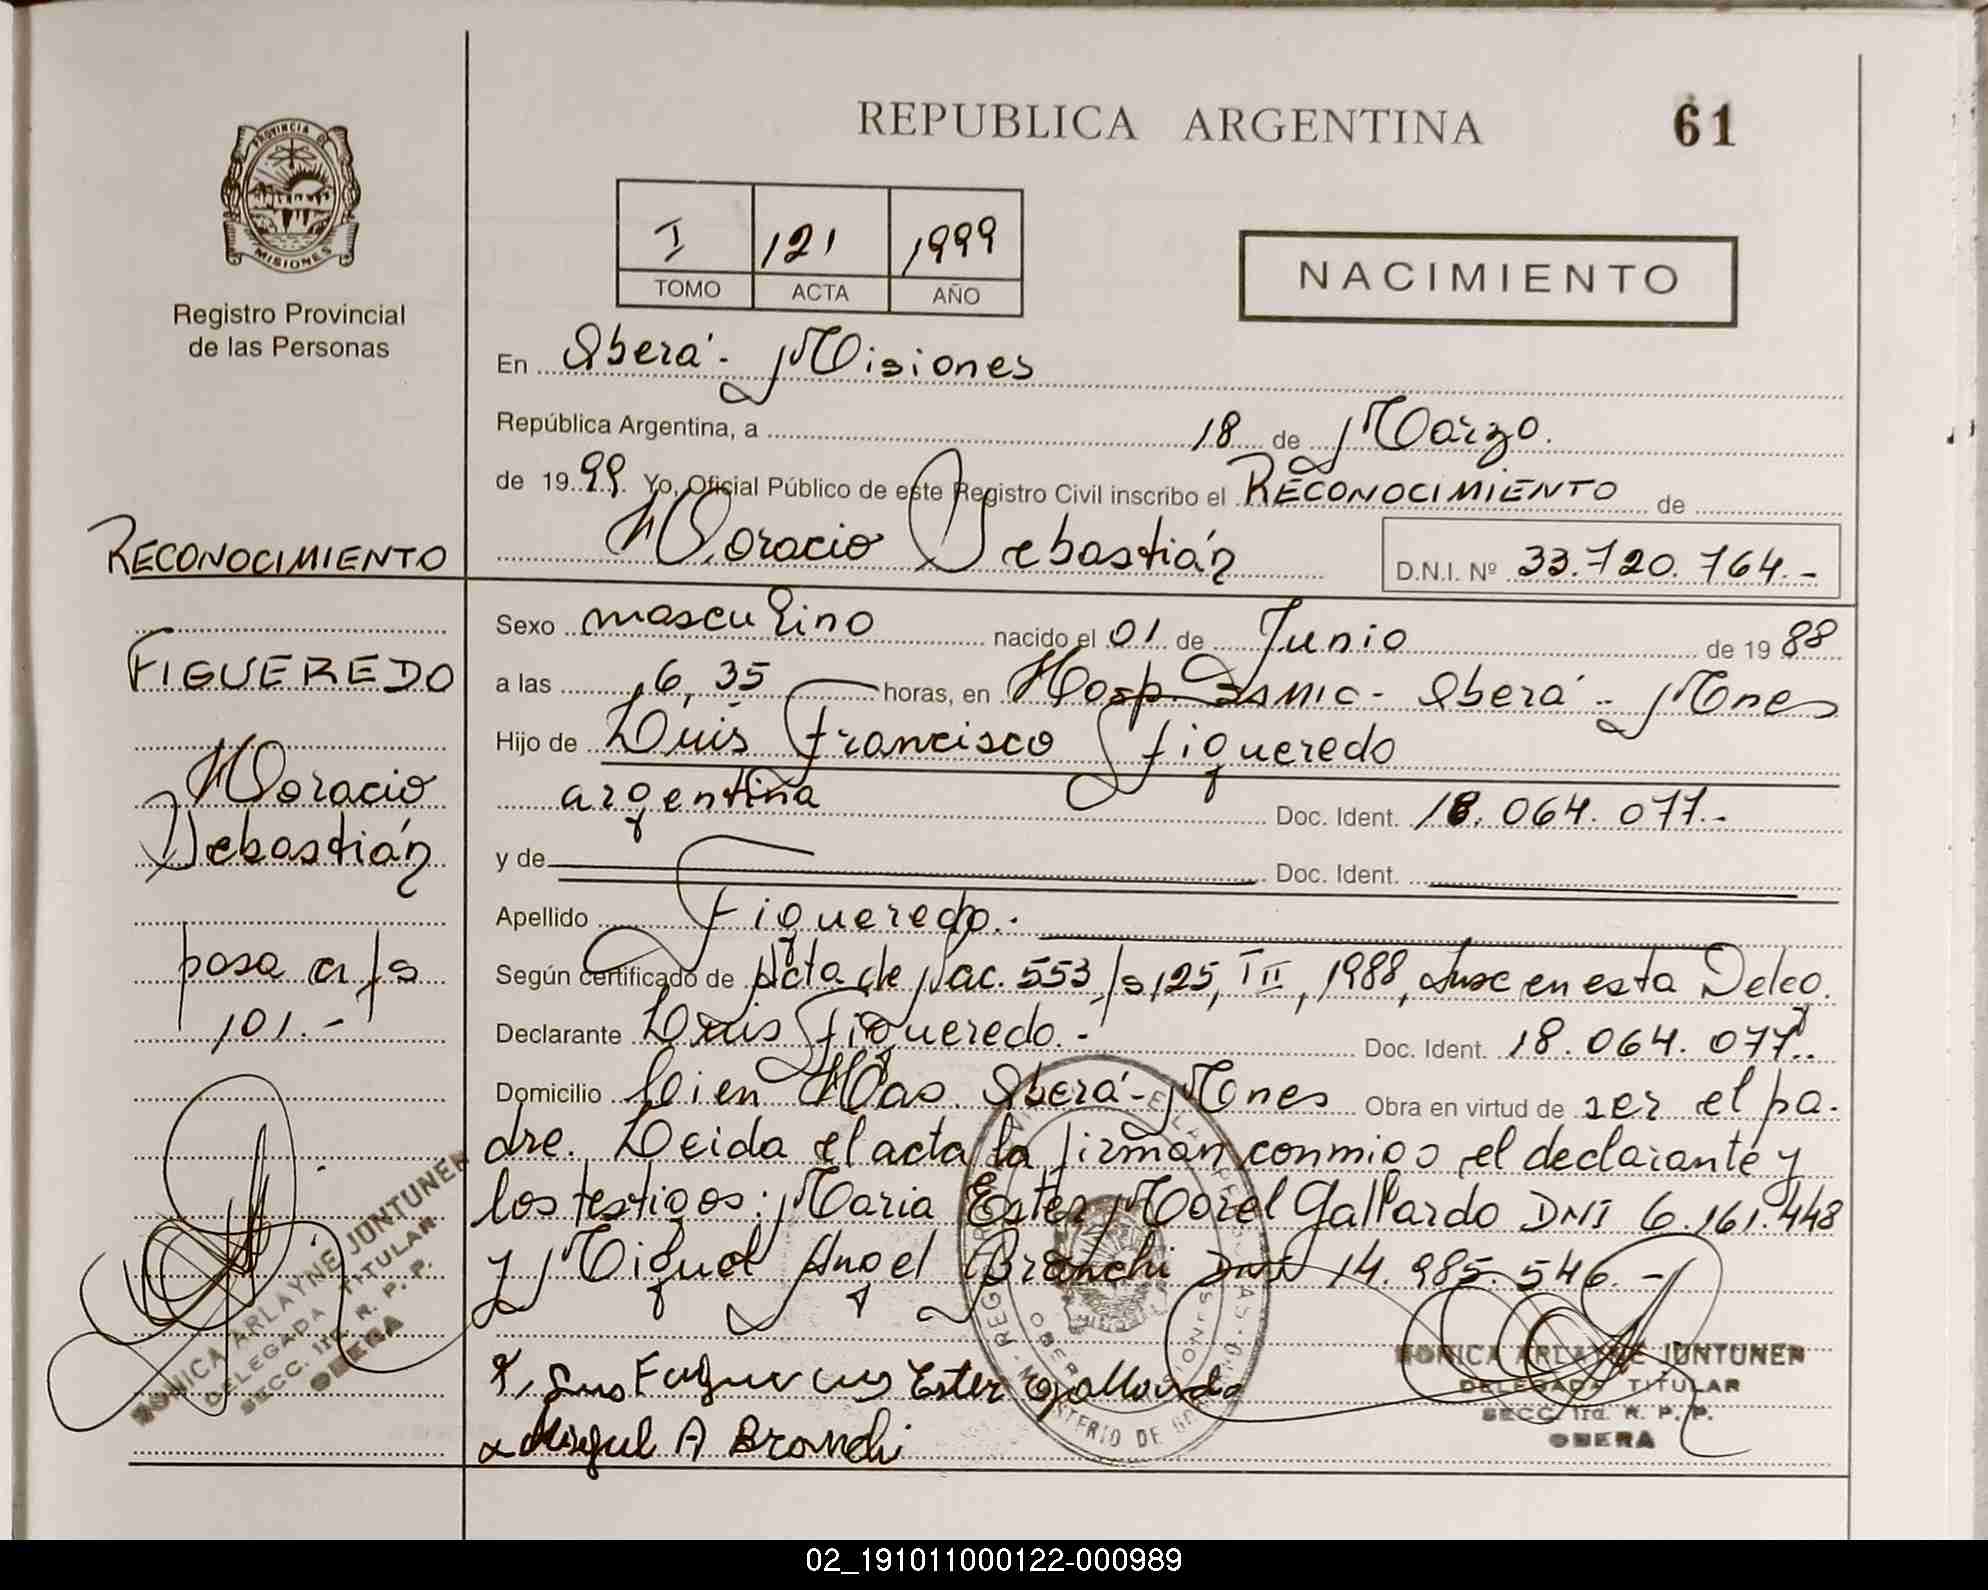 REPUBLICA ARGENTINA
61
PROVINCIA DE
MISIONES
Registro Provincial
de las Personas
I 121 1999
TOMO ACTA AÑO
NACIMIENTO
En Oberá - Misiones
República Argentina, a 18 de Marzo.
de 1999. Yo, Oficial Público de este Registro Civil inscribo el RECONOCIMIENTO de
Horacio Sebastián D.N.I. Nº 33.720.764.-
RECONOCIMIENTO
FIGUEREDO
Horacio
Sebastián
pasa a fs
101.-
Sexo masculino nacido el 01 de Junio de 1988
a las 6,35 horas, en Hosp SAMIC - Oberá - Mnes
Hijo de Luis Francisco Figueredo
argentina Doc. Ident. 18.064.077.-
y de Doc. Ident.
Apellido Figueredo.-
Según certificado de Acta de Nac. 553, fs 125, T III, 1988, Insc en esta Deleg.
Declarante Luis Figueredo.- Doc. Ident. 18.064.077.
Domicilio Cien Has Oberá - Mnes Obra en virtud de ser el pa-
dre. Leida el acta la firman conmigo el declarante y
los testigos: Maria Ester Morel Gallardo DNI 6.161.448
y Miguel Angel Branchi DNI 14.985.546.-
Ester Gallardo
Miguel A Branchi
MONICA ARLAYNE JUNTUNEN
DELEGADA TITULAR
SECC. 1ra. R. P. P.
OBERA
MONICA ARLAYNE JUNTUNEN
DELEGADA TITULAR
SECC. 1ra. R. P. P.
OBERA
02_191011000122-000989